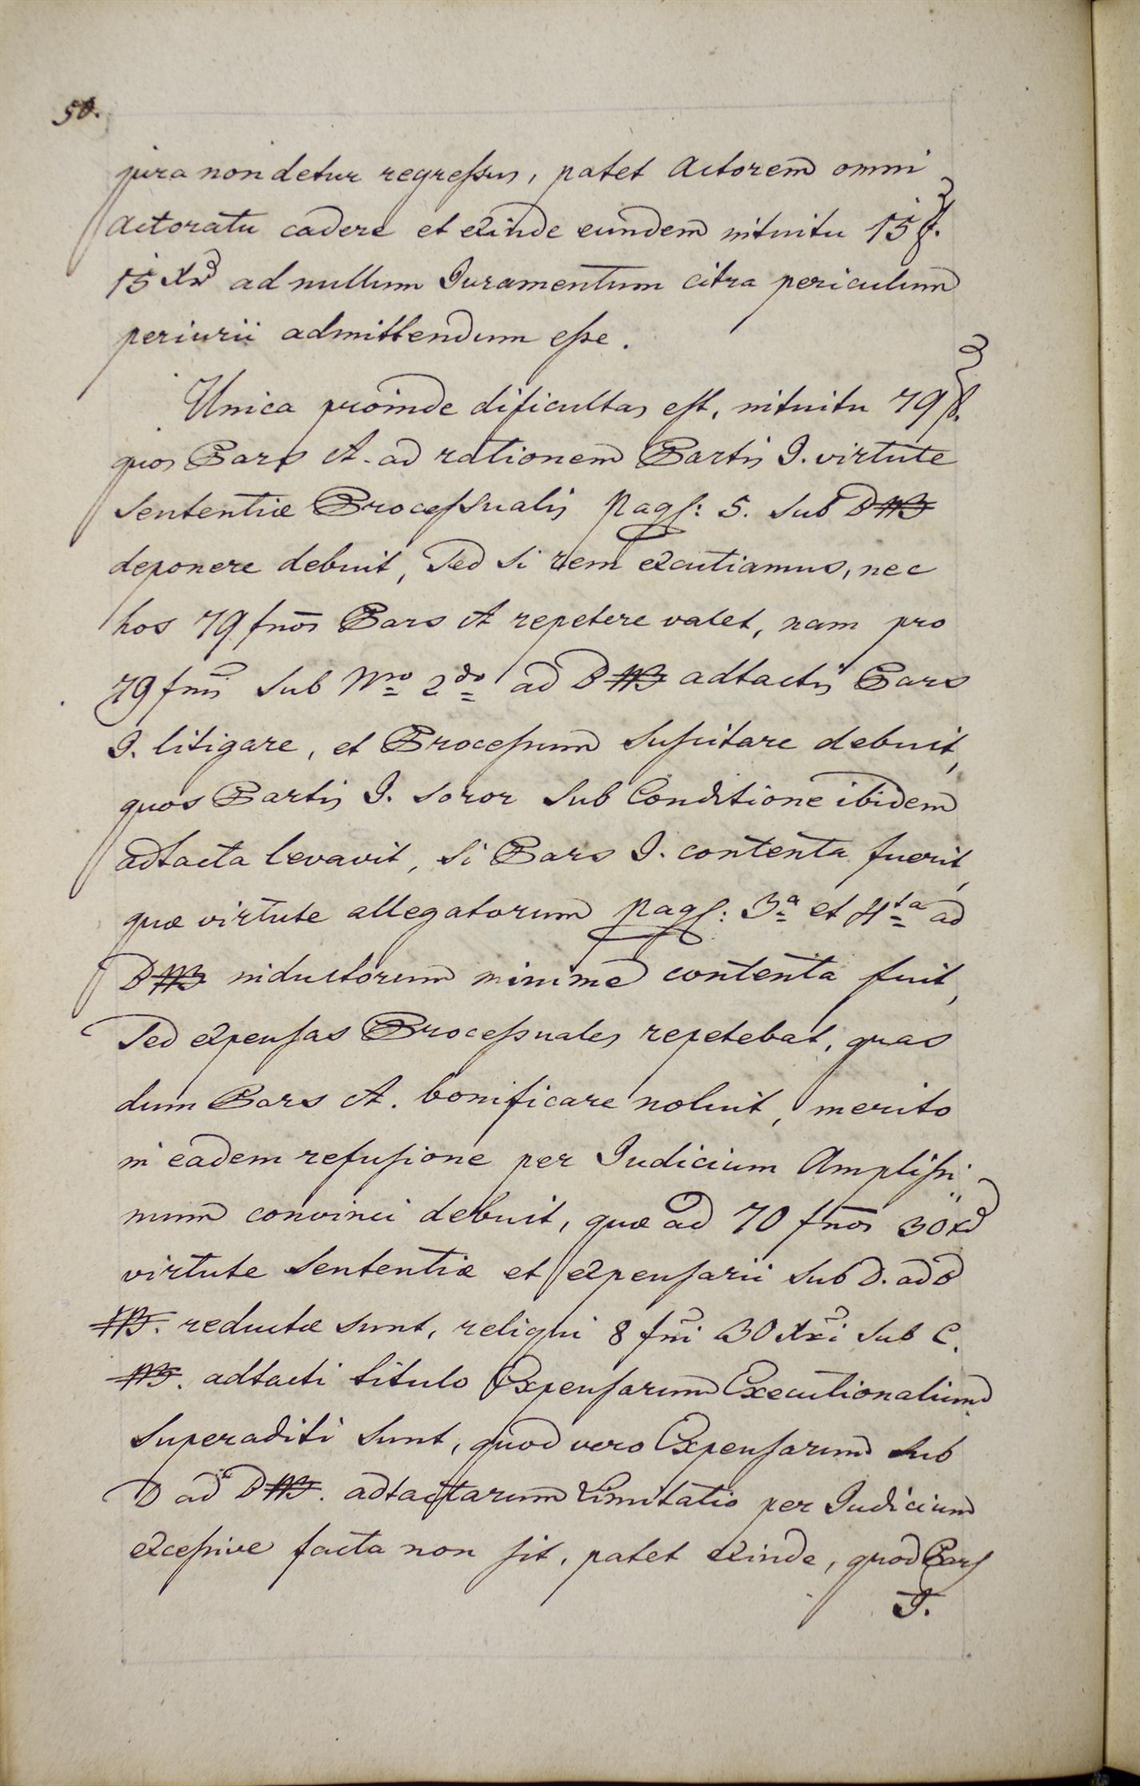 50.
jura non detur regressus, patet Actorem omni
Actoratu cadere et exinde eundem intuitu 15 f.
15 Xr ad nullum Juramentum citra periculum
periurii admittendum esse.
Unica proinde dificultas est, intuitu 79 f.
quos Pars A. ad rationem Partis I. virtute
Sententiæ Processualis Pag: 5. sub B
deponere debuit, sed si rem excutiamus, nec
hos 79 fnos Pars A repetere valet, nam pro
79 fnis sub Nro 2do ad B adtactis Pars
I. litigare, et Processum suscitare debuit,
quos Partis I. soror sub Conditione ibidem
adtacta levavit, si Pars I. contenta fuerit,
quæ virtute allegatorum pag: 3a et 4ta ad
B inductorum minime contenta fuit,
sed expensas Processuales repetebat, quas
dum Pars A. bonificare noluit, merito
in eadem refusione per Judicium Amplissi
mum convinci debuit, quæ ad 70 fnos 30 x
virtute Sententiæ et expensarii sub D. ad B
reductæ sunt, reliqui 8 fni 30 Xri sub C.
adtacti titulo Expensarum Executionalium
superaditi sunt, quod vero Expensarum sub
D ad B adtactarum Limitatio per Judicium
excessive facta non sit, patet exinde, quod Pars
I.